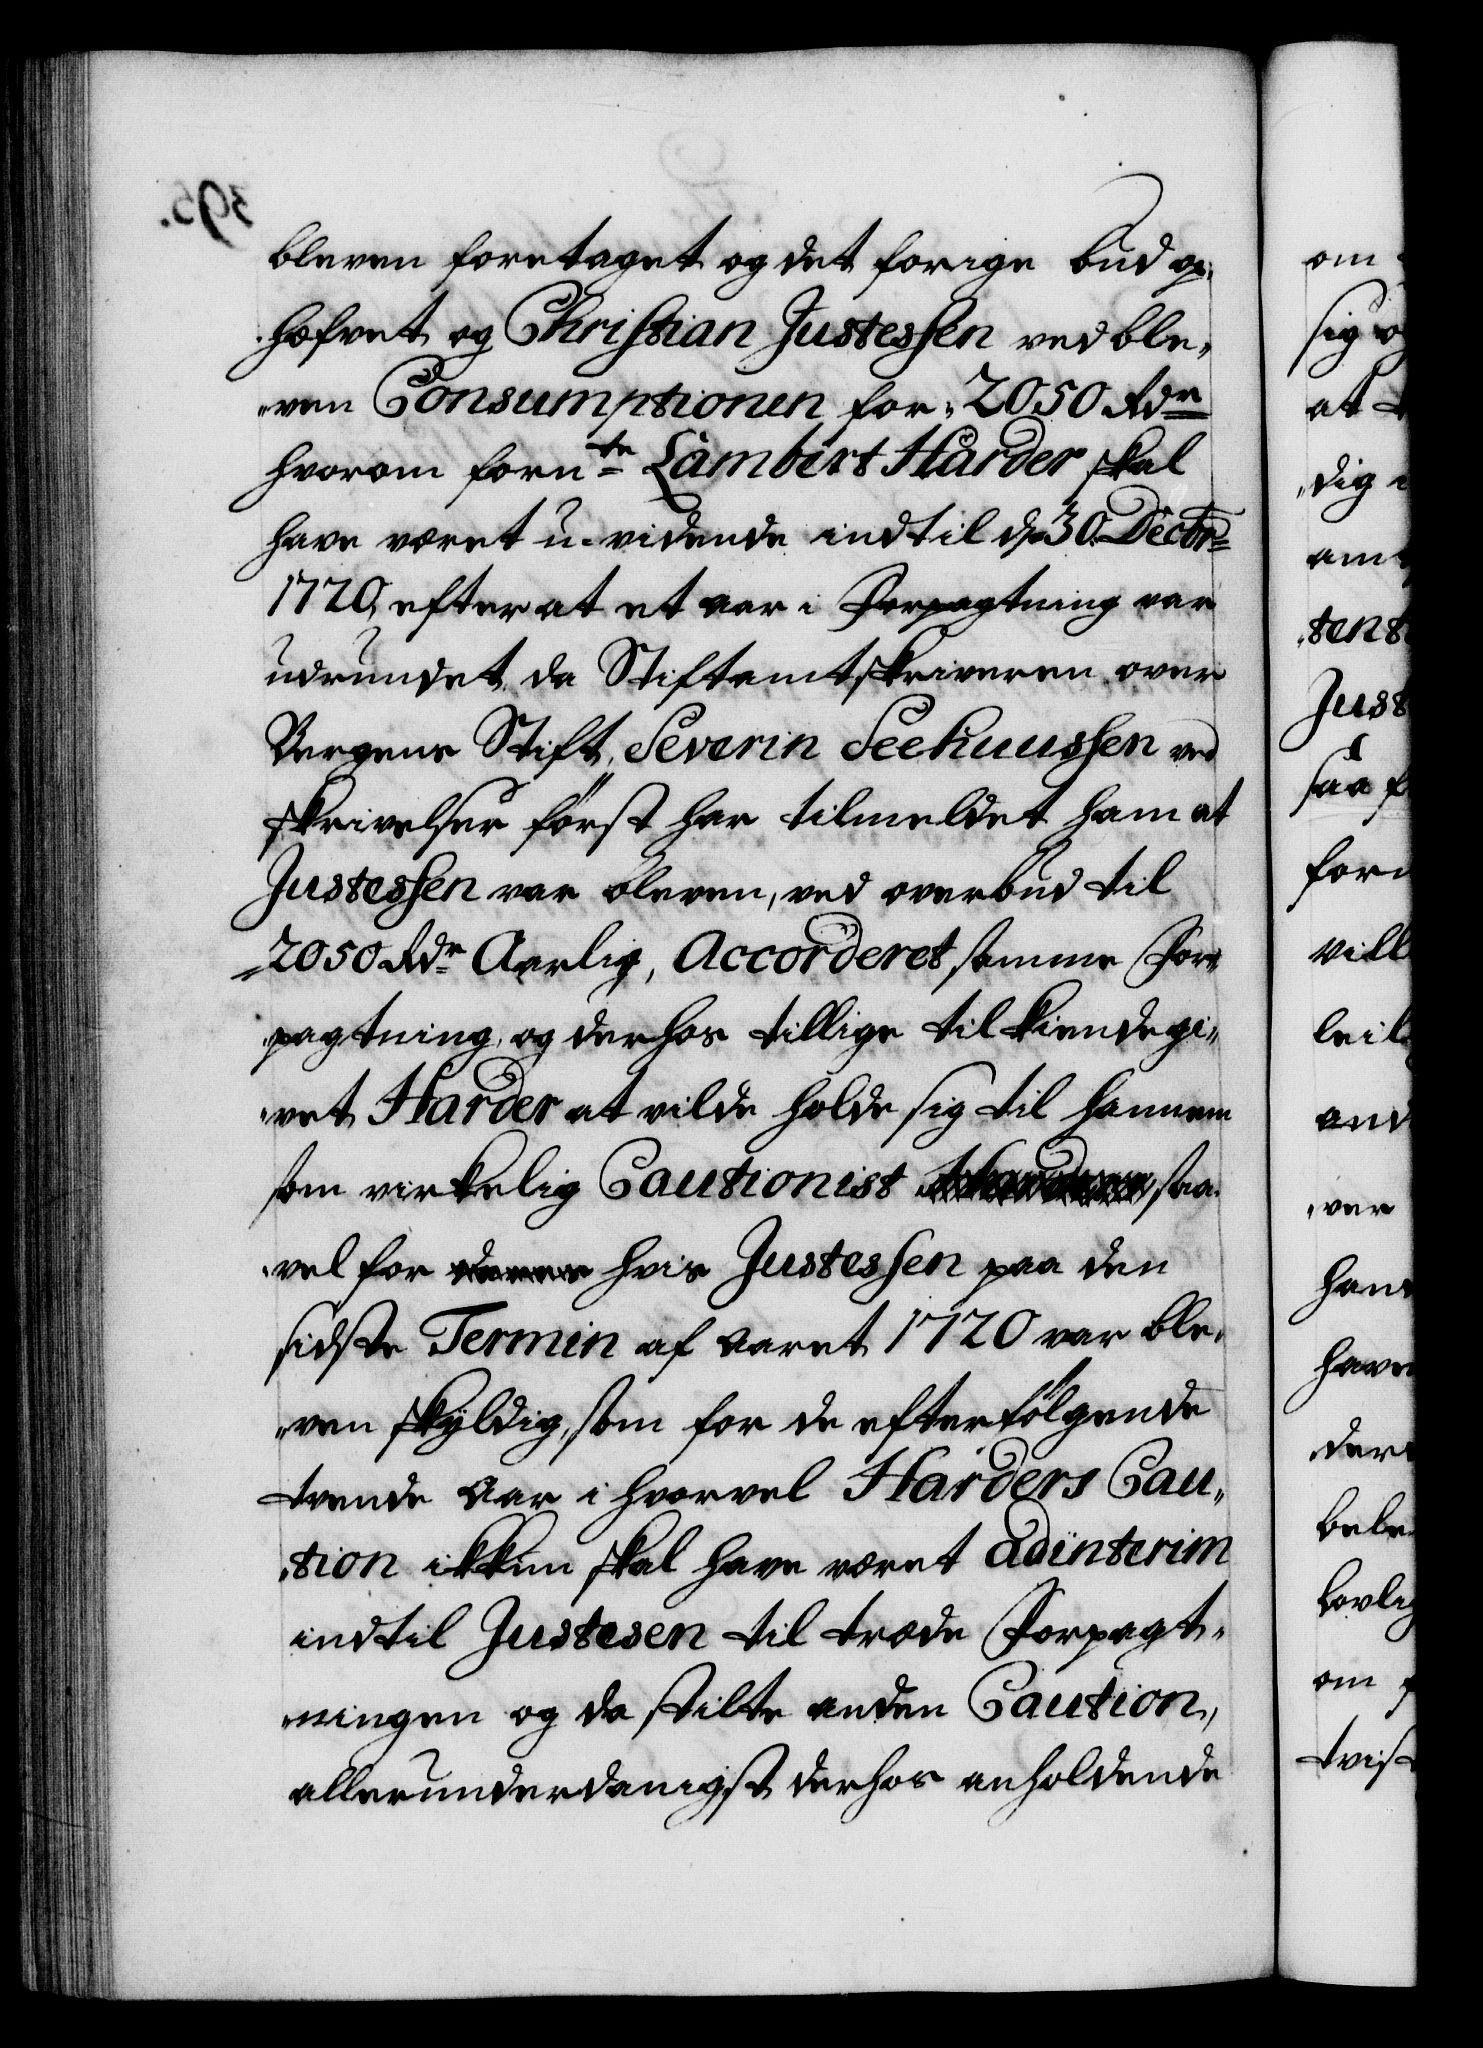 bleven foretaget og det forige bud op¬
hæfvet og Christian Justessen ved ble¬
ven Consumptionen for 2050 Rdr
hvorom fornte Lambert Harder skal
have været u-vidende indtil d. 30. Decbr
1720, efter at et aar i Forpagtning var
udrundet, da Stiftamtskriveren over
Bergens Stift, Severin Seehuussen ved
skrivelser först har tilmeldet ham at
Justessen var bleven, ved overbud til
2050 Rdr Aarlig, Accorderet samme For¬
pagtning, og derhos tillige tilkiendegi¬
vet Harder at vilde holde sig til hannem
som virkelig Cautionist saa¬
vel for hvis Justessen paa den
sidste Termin af aaret 1720 var ble¬
ven skyldig, som for de efterfölgende
tvende Aar i hvorvel Harders Cau¬
tion ikkun skal have været adinterim
indtil Justesen til træde Forpagt¬
ningen og da stilte anden Caution,
allerunderdanigst derhos anholdende